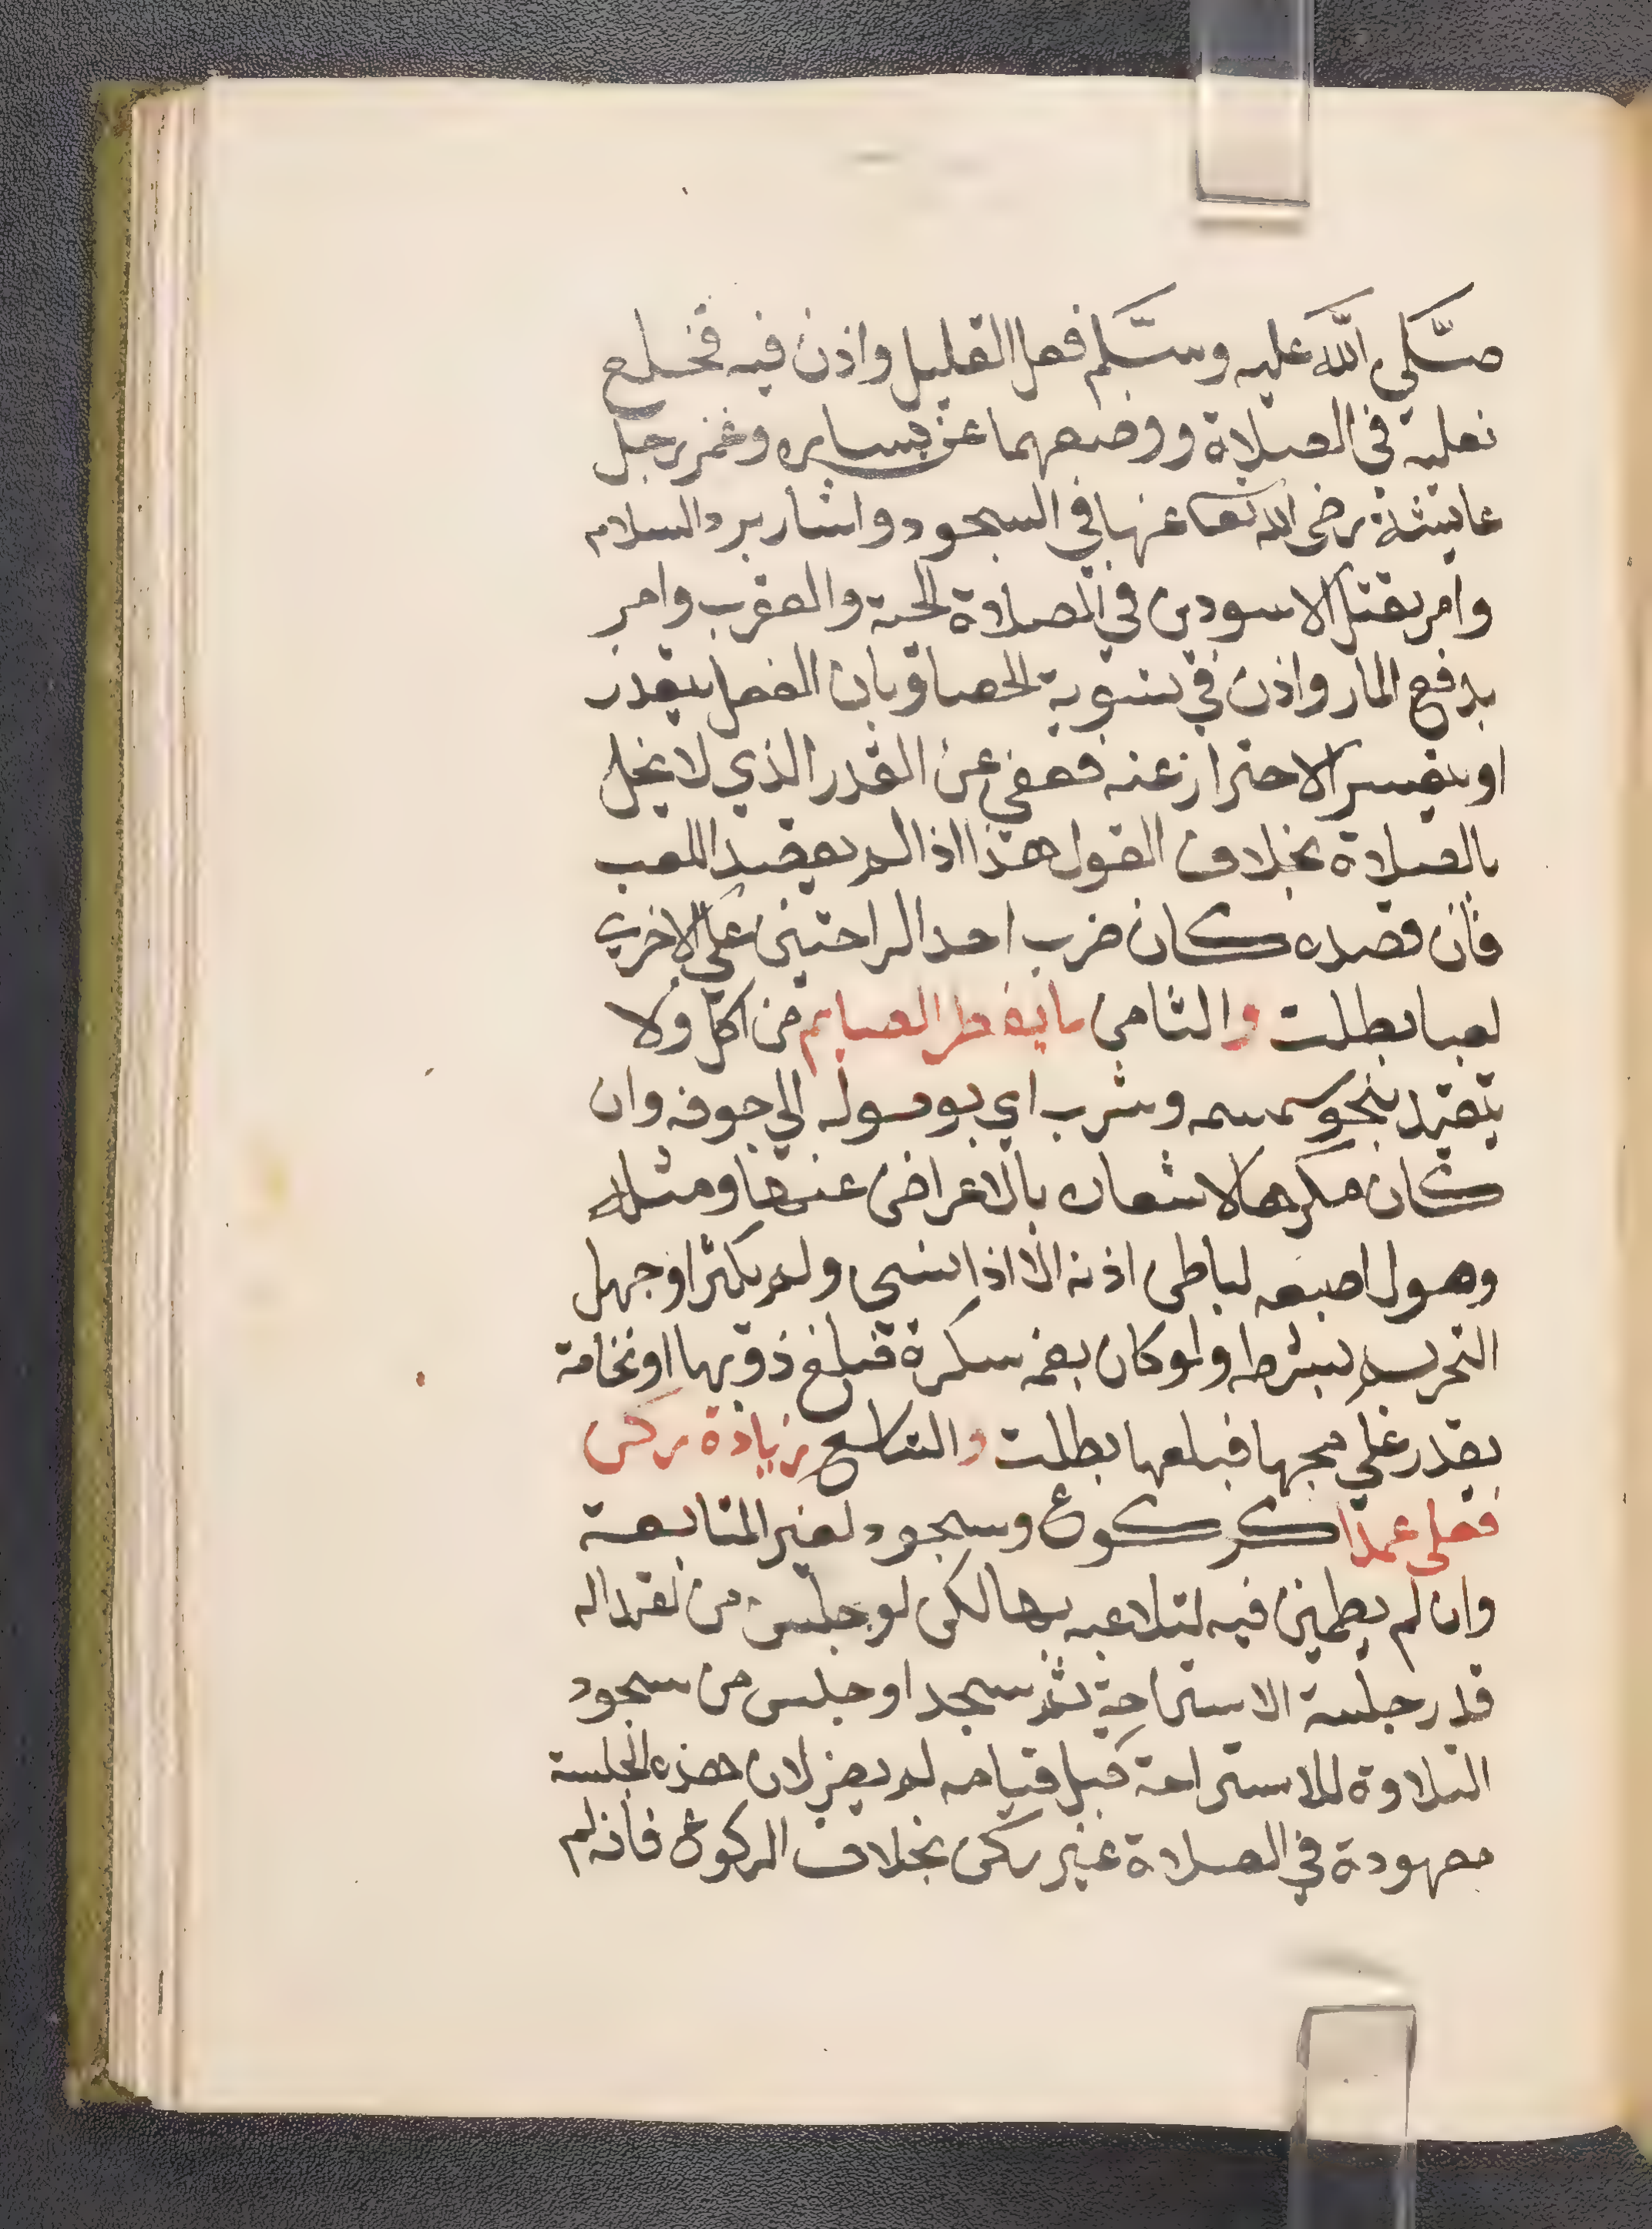 صلى الله عليه وسلم فعل القليل واذن فيه فخلع
نعليه في الصلاة ووضعهما عن يساره وغمز رجل
عايشة رضى الله تعا عنها في السجود واشار برد السلام
وامر بقتل الاسودين في الصلاة الحية والعقرب وامر
بدفع المار واذن في تسوية الحصا وبان الفعل يتعذر
او يتعسر الاحتراز عنه فعفي عن القدر الذي لا يخل
بالصلاة بخلاف القول هذا اذا لم يقصد اللعب
فان قصده كان ضرب احد الراحتين على الاخرى
لعبا بطلت والثامن ما يفطر الصايم من اكل ولا
يتقيد بنحو سمسمه وشرب اي بوصوله الي جوفه وان
كان مكرها لاشعاره بالاعراض عنها ومثله
وصول اصبعه لباطن اذنه الا اذا نسي ولم يكثر او جهل
التحريم بشرطه ولو كان بفمه سكرة فبلع ذوبها او نخامة
يقدر على مجها فبلعها بطلت والتاسع زيادة ركن
فعلى عمدا كركوع وسجود لغير المتابعة
وان لم يطمين فيه لتلاعبه بها لكن لو جلس من اعتداله
قدر جلسة الاستراحة ثم سجد او جلس من سجود
التلاوة للاستراحة قبل قيامه لم يضر لان هذه الجلسة
معهودة في الصلاة غير ركن بخلاف الركوع فانه لم